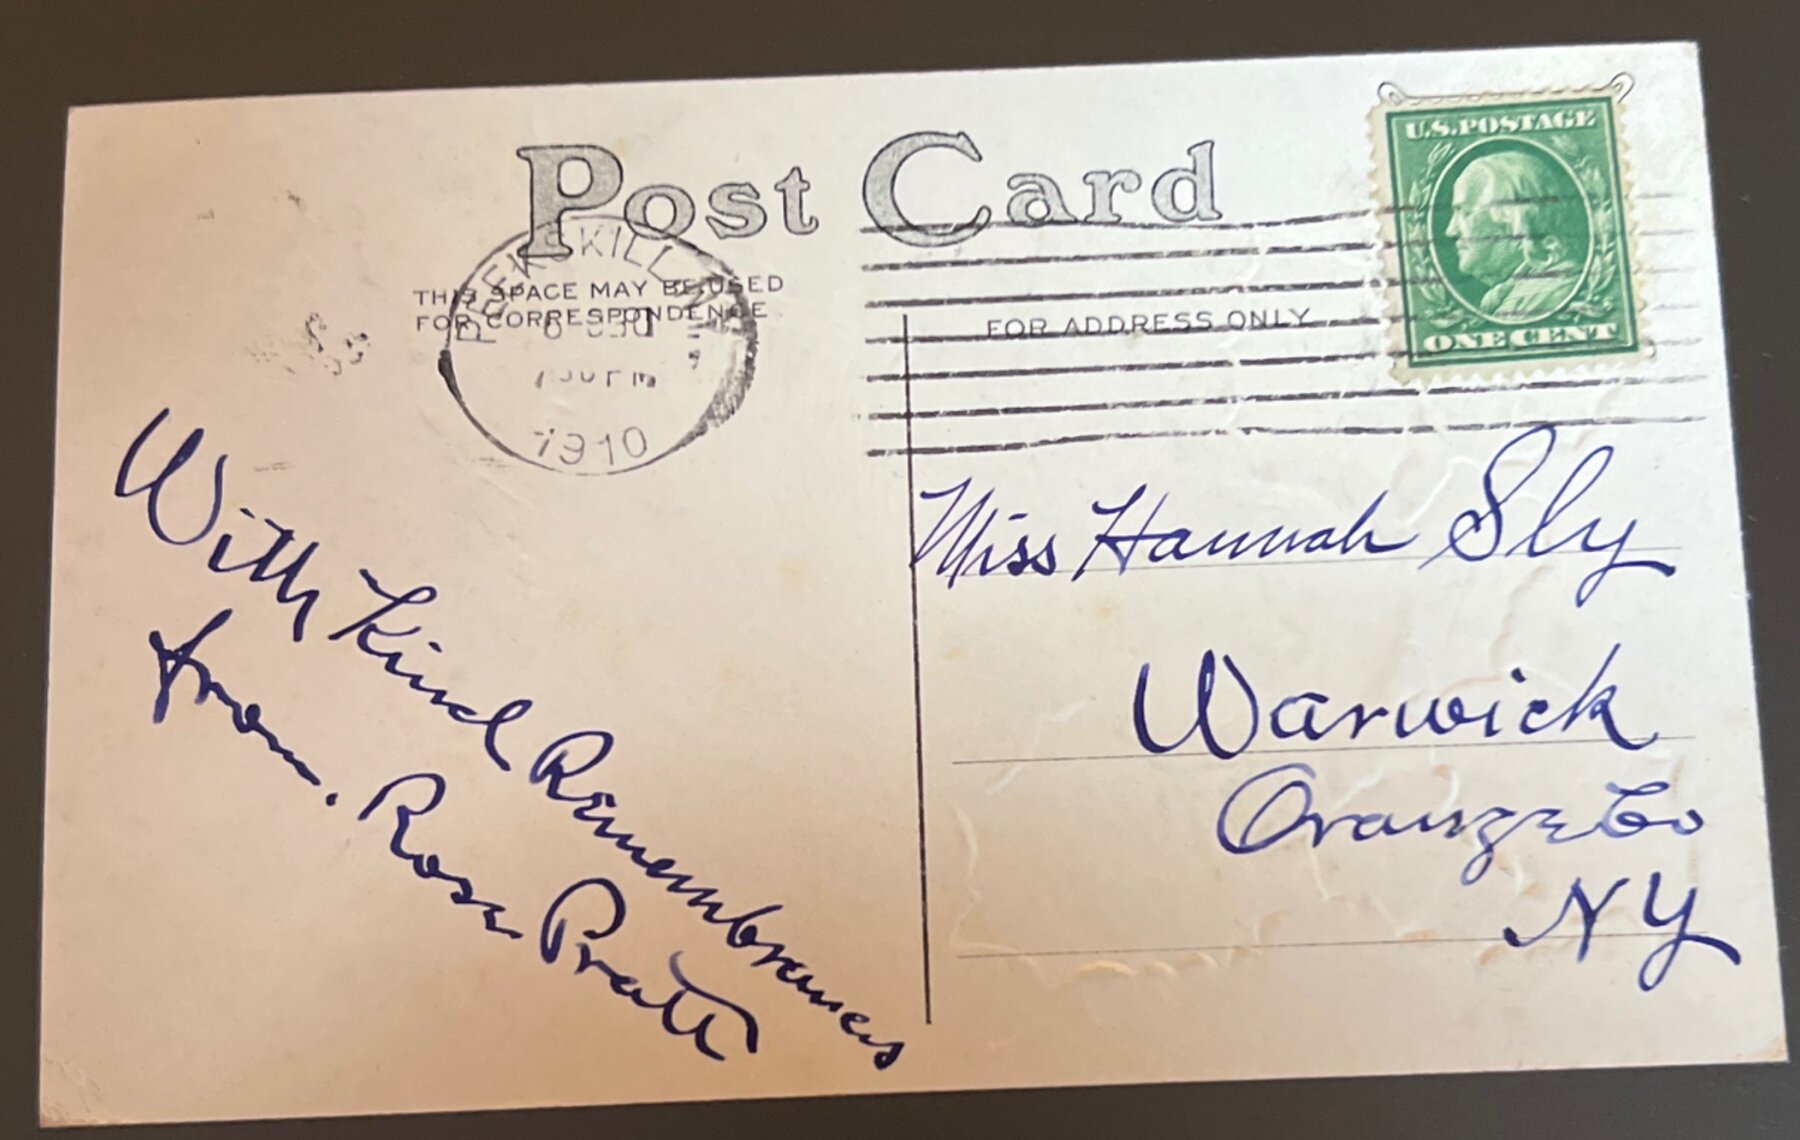 Post Card
THIS SPACE MAY BE USED
FOR CORRESPONDENCE
FOR ADDRESS ONLY
U.S. POSTAGE
ONE CENT
PEEKSKILL
1910
With Kind Remembrances
from. Rose Pratt
Miss Hannah Sly
Warwick
Orange Co
NY